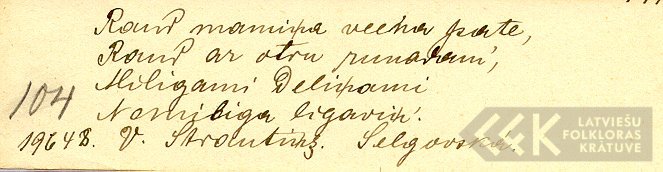 Raud mamiņa vecka pate,
Raud ar otru runadami,
Miligami Deliņami
Nemiliga ligaviņ.
104
19648. V. Strautiņš. Selgovskā.
LATVIEŠU
FOLKLORAS
KRĀTUVE